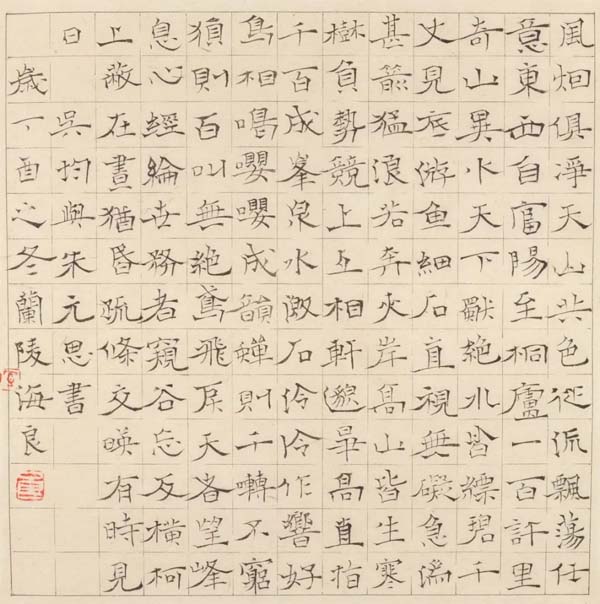 風烟俱淨天山共色從流飄蕩任
意東西自富陽至桐廬一百許里
奇山異水天下獨絕水皆縹碧千
丈見底游魚細石直視無礙急湍
甚箭猛浪若奔夾岸高山皆生寒
樹負勢競上互相軒邈爭高直指
千百成峯泉水激石泠泠作響好
鳥相鳴嚶嚶成韻蟬則千囀不窮
猨則百叫無絕鳶飛戾天者望峰
息心經綸世務者窺谷忘反橫柯
上蔽在晝猶昏疏條交映有時見
日 吳均與朱元思書
歲丁酉之冬蘭陵海良